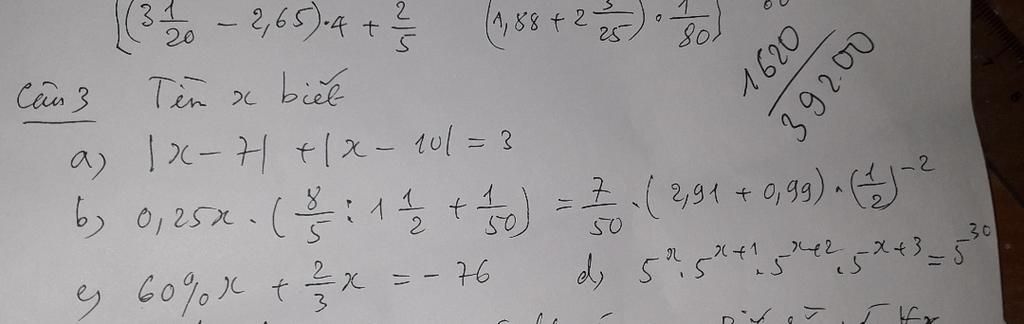 [(3 1/20 - 2,65) · 4 + 2/5 (1,88 + 2 3/25) · 1/80]
1620/39200
Câu 3 Tìm x biết
a) |x - 7| + |x - 10| = 3
b) 0,25x · (8/5 : 1 1/2 + 1/50) = 7/50 · (2,91 + 0,99) · (1/2)^-2
c) 60%x + 2/3x = -76 d) 5^x · 5^x+1 · 5^x+2 · 5^x+3 = 5^30